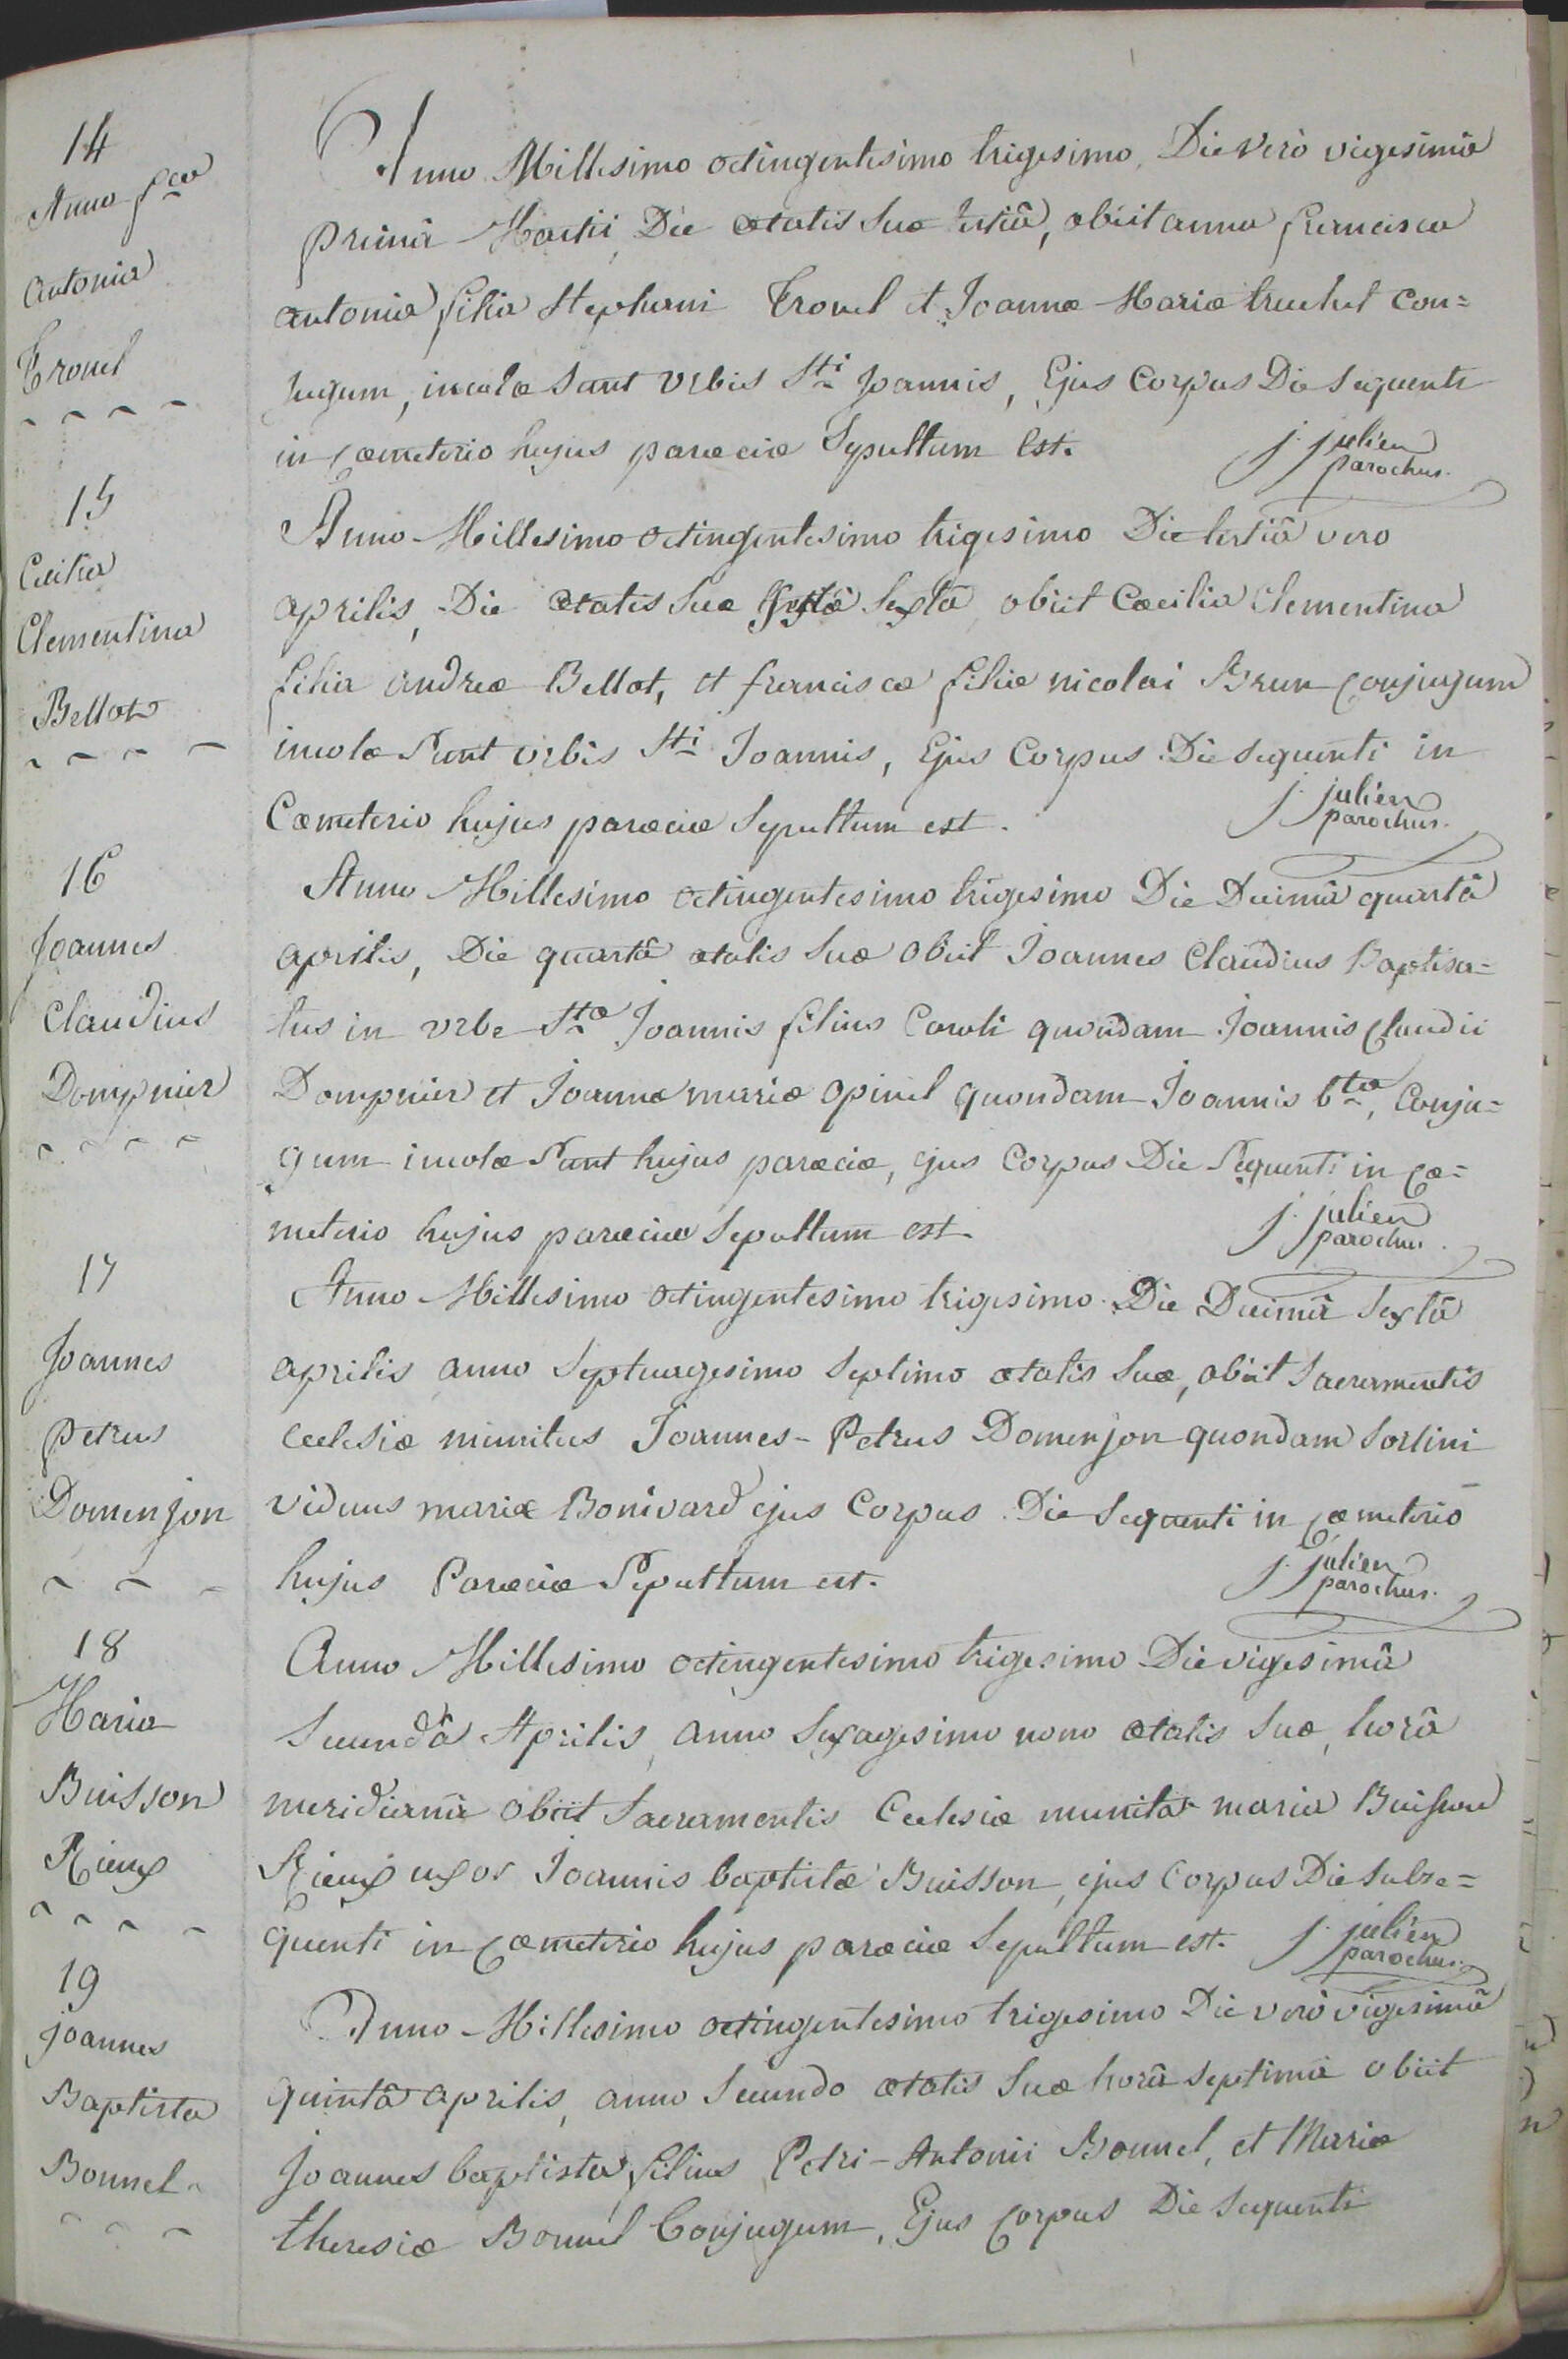 14
Anna fca
antonia
Tronel
Anno Millesimo octingentesimo trigesimo, Die verò vigesimâ
primâ Martii, Die ætatis suæ tertiâ, obiit anna francisca
antonia filia Stephani Tronel et Joannæ Mariæ truchet con=
jugum, incolæ sunt Urbis Sti Joannis, Ejus Corpus Die sequenti
in cæmeterio hujus parœciæ Sepultum Est.
j. julien
parochus.
15
Cecilia
Clementina
Bellot
Anno Millesimo octingentesimo trigesimo Die tertiâ vero
aprilis, Die ætatis suæ sextâ obiit Cœcilia Clementina
filia andreæ Bellot, et franciscæ filiæ nicolai Brun conjugum
incolæ Sunt Urbis Sti Joannis, Ejus Corpus Die sequenti in
Cæmeterio hujus parœciæ Sepultum est.
j. julien
parochus.
16
Joannes
Claudius
Dompnier
Anno Millesimo octingentesimo trigesimo Die Decimâ quartâ
aprilis, Die quartâ ætatis suæ obiit Joannes Claudius Baptisa=
tus in urbe Sta Joannis filius Caroli quondam Joannis Claudii
Dompnier et Joannæ mariæ opinel quondam Joannis btæ, Conju=
gum incolæ Sunt hujus parœciæ, ejus Corpus Die Sequenti in cæ=
meterio hujus parœciæ Sepultum est.
j. julien
parochus.
17
Joannes
petrus
Domenjon
Anno Millesimo octingentesimo trigesimo Die Decimâ Sextâ
aprilis anno Septuagesimo Septimo ætatis suæ, obiit Sacramentis
Ecclesiæ munitus Joannes-Petrus Domenjon quondam Sorlini
viduus mariæ Bonivard ejus Corpus Die Sequenti in cæmeterio
hujus Parœciæ Sepultum est.
j. julien
parochus.
18
Maria
Buisson
Rieux
Anno Millesimo octingentesimo trigesimo Die vigesimâ
Secundâ Aprilis, anno Sexagesimo nono ætatis suæ, horâ
meridianâ obiit Sacramentis Ecclesiæ munita maria Buisson
Rieux uxor Joannis baptistæ Buisson, ejus Corpus Die Subse=
quenti in cæmeterio hujus parœciæ Sepultum est.
j. julien
parochus.
19
joannes
Baptista
Bonnel
Anno Millesimo octingentesimo trigesimo Die verò vigesimâ
quintâ aprilis, anno Secundo ætatis suæ horâ septimâ obiit
Joannes baptista filius Petri-Antonii Bonnel, et Mariæ
theresiæ Bonnel Conjugum, Ejus Corpus Die Sequenti